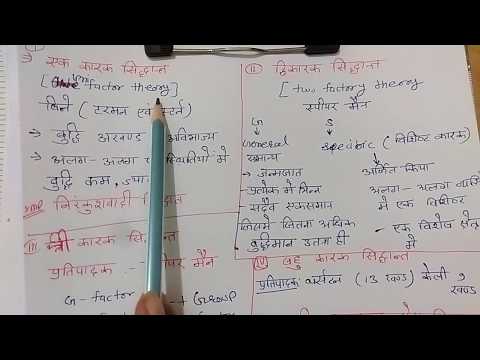 → एक कारक सिद्धान्त
[ uni factor theory]
बिने (टरमन एवं स्टर्न)
→ बुद्धि अखण्ड अविभाज्य
→ अलग-अलग में
बुद्धि कम,
निरंकुशवादी सिद्धांत
III त्री कारक सिद्धान्त
प्रतिपादक :- स्पीयर मैन
G-factor + Group
II द्विकारक सिद्धान्त
[ two factory theory
स्पीयर मैन
G S
General specific (विशिष्ट कारक)
सामान्य
→ जन्मजात अर्जित किया
प्रत्येक में भिन्न अलग-अलग
सदैव एकसमान में एक विशिष्ट
जिसमें जितना अधिक - एक विशेष क्षेत्र
बुद्धिमान उतना ही में
IV बहु कारक सिद्धान्त
प्रतिपादक थर्सटन (13 खण्ड) केली 9
खण्ड